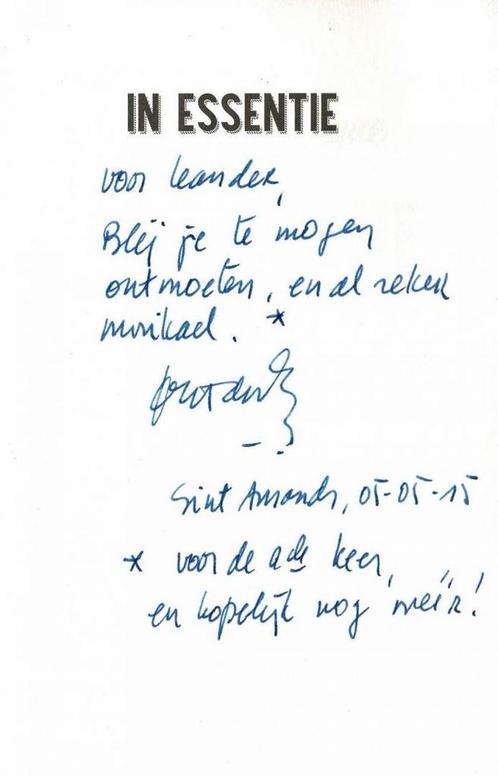 IN ESSENTIE
voor Leander,
Blij je te mogen
ontmoeten, en al zeker
muzikaal. *
Sint Amands, 05-05-15
* voor de a de keer,
en hopelijk nog méér!